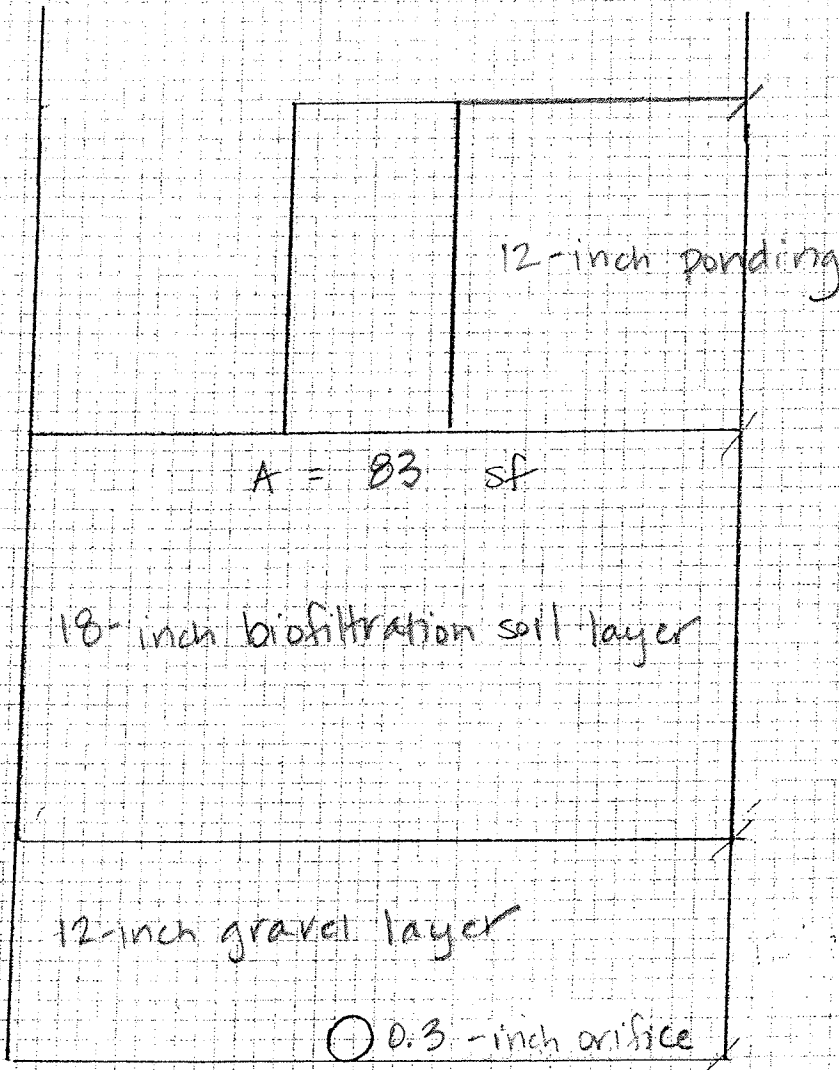 12-inch ponding
A = 83 sf
18-inch biofiltration soil layer
12-inch gravel layer
0.3-inch orifice